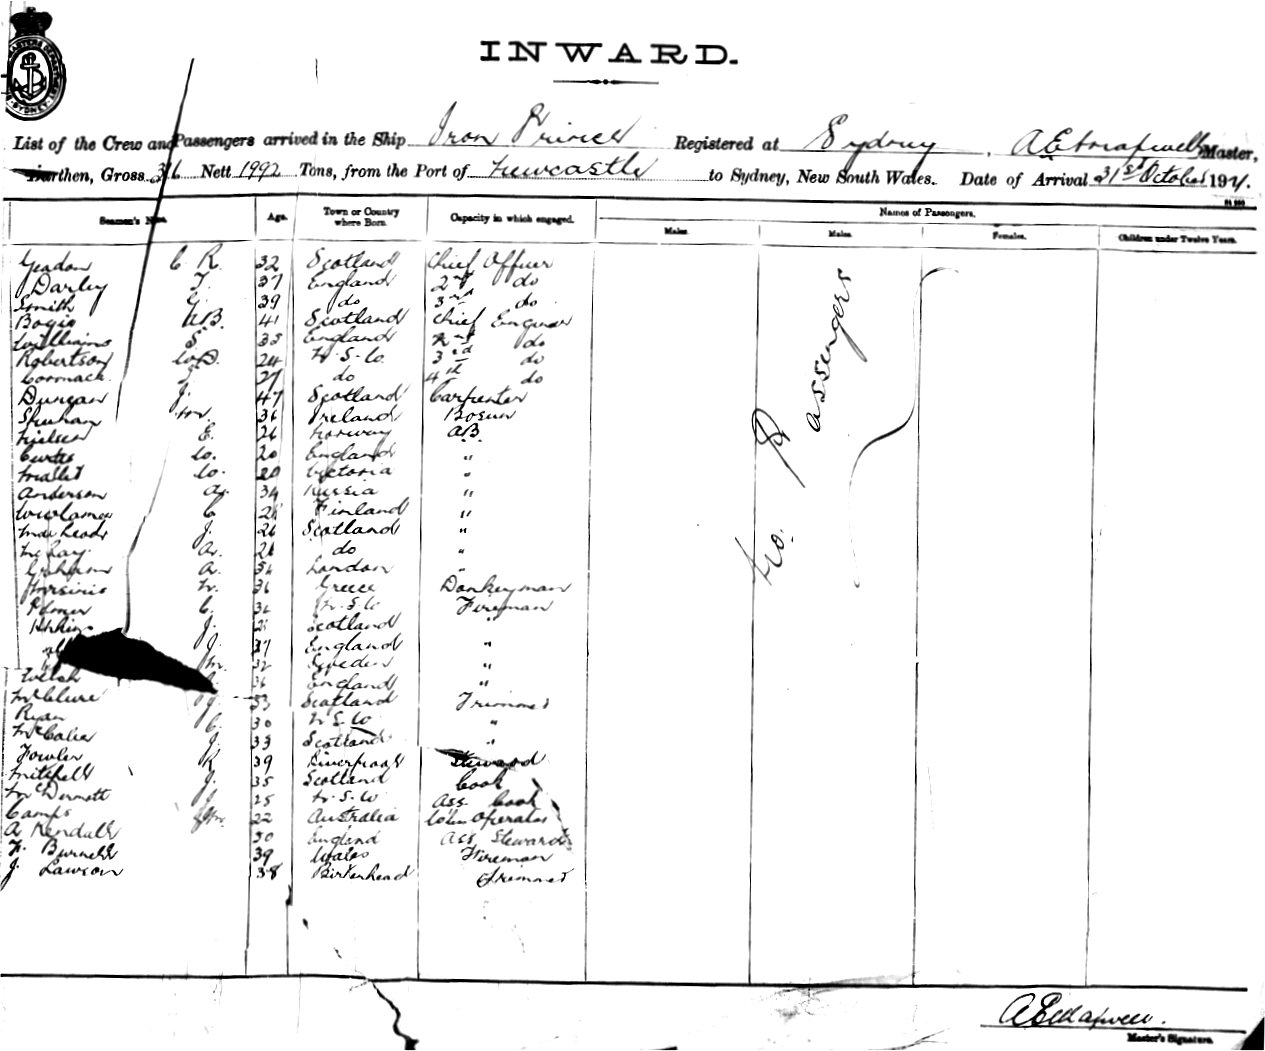 INWARD.
List of the Crew and Passengers arrived in the Ship Iron Prince Registered at Sydney, Master,
Burthen, Gross 316 Nett 1992 Tons, from the Port of Newcastle to Sydney, New South Wales. Date of Arrival 31st October 192
Seamen's Age. Town or Country where Born. Capacity in which engaged. Names of Passengers.
Males. Males. Females. Children under Twelve Years.
C R. 32 Scotland Chief Officer
Darley T. 37 England 2nd do
Smith G. 39 do 3rd do
41 Scotland Chief Engineer
Williams S. 33 England 2nd do
Robertson W.D. 24 N.S.W. 3rd do
Cormack 27 do 4th do
Duncan J. 47 Scotland Carpenter
36 Ireland Bosun
Nielsen E. 26 Norway AB
Curtis W. 20 England "
W. 20 Victoria "
Anderson A. 34 Russia "
C Finland "
J. 26 Scotland "
McKay A. 26 do "
A. London "
N. 36 Greece Donkeyman
C. N.S.W Fireman
J. Scotland "
J. 37 England "
M. 32 Sweden "
Welsh 36 England "
McClure J. 53 Scotland Trimmer
Ryan C. 30 N.S.W "
J. 33 Scotland "
Fowler R 39 Liverpool Steward
Mitchell J. 35 Scotland Cook
McDermott J 25 N.S.W Ass Cook
Camps 22 Australia Operator
A Kendall 30 England Ass Steward
Burnell 39 Wales Fireman
J. Lawson 38 Birkenhead Trimmer
No. Passengers
Master's Signature.